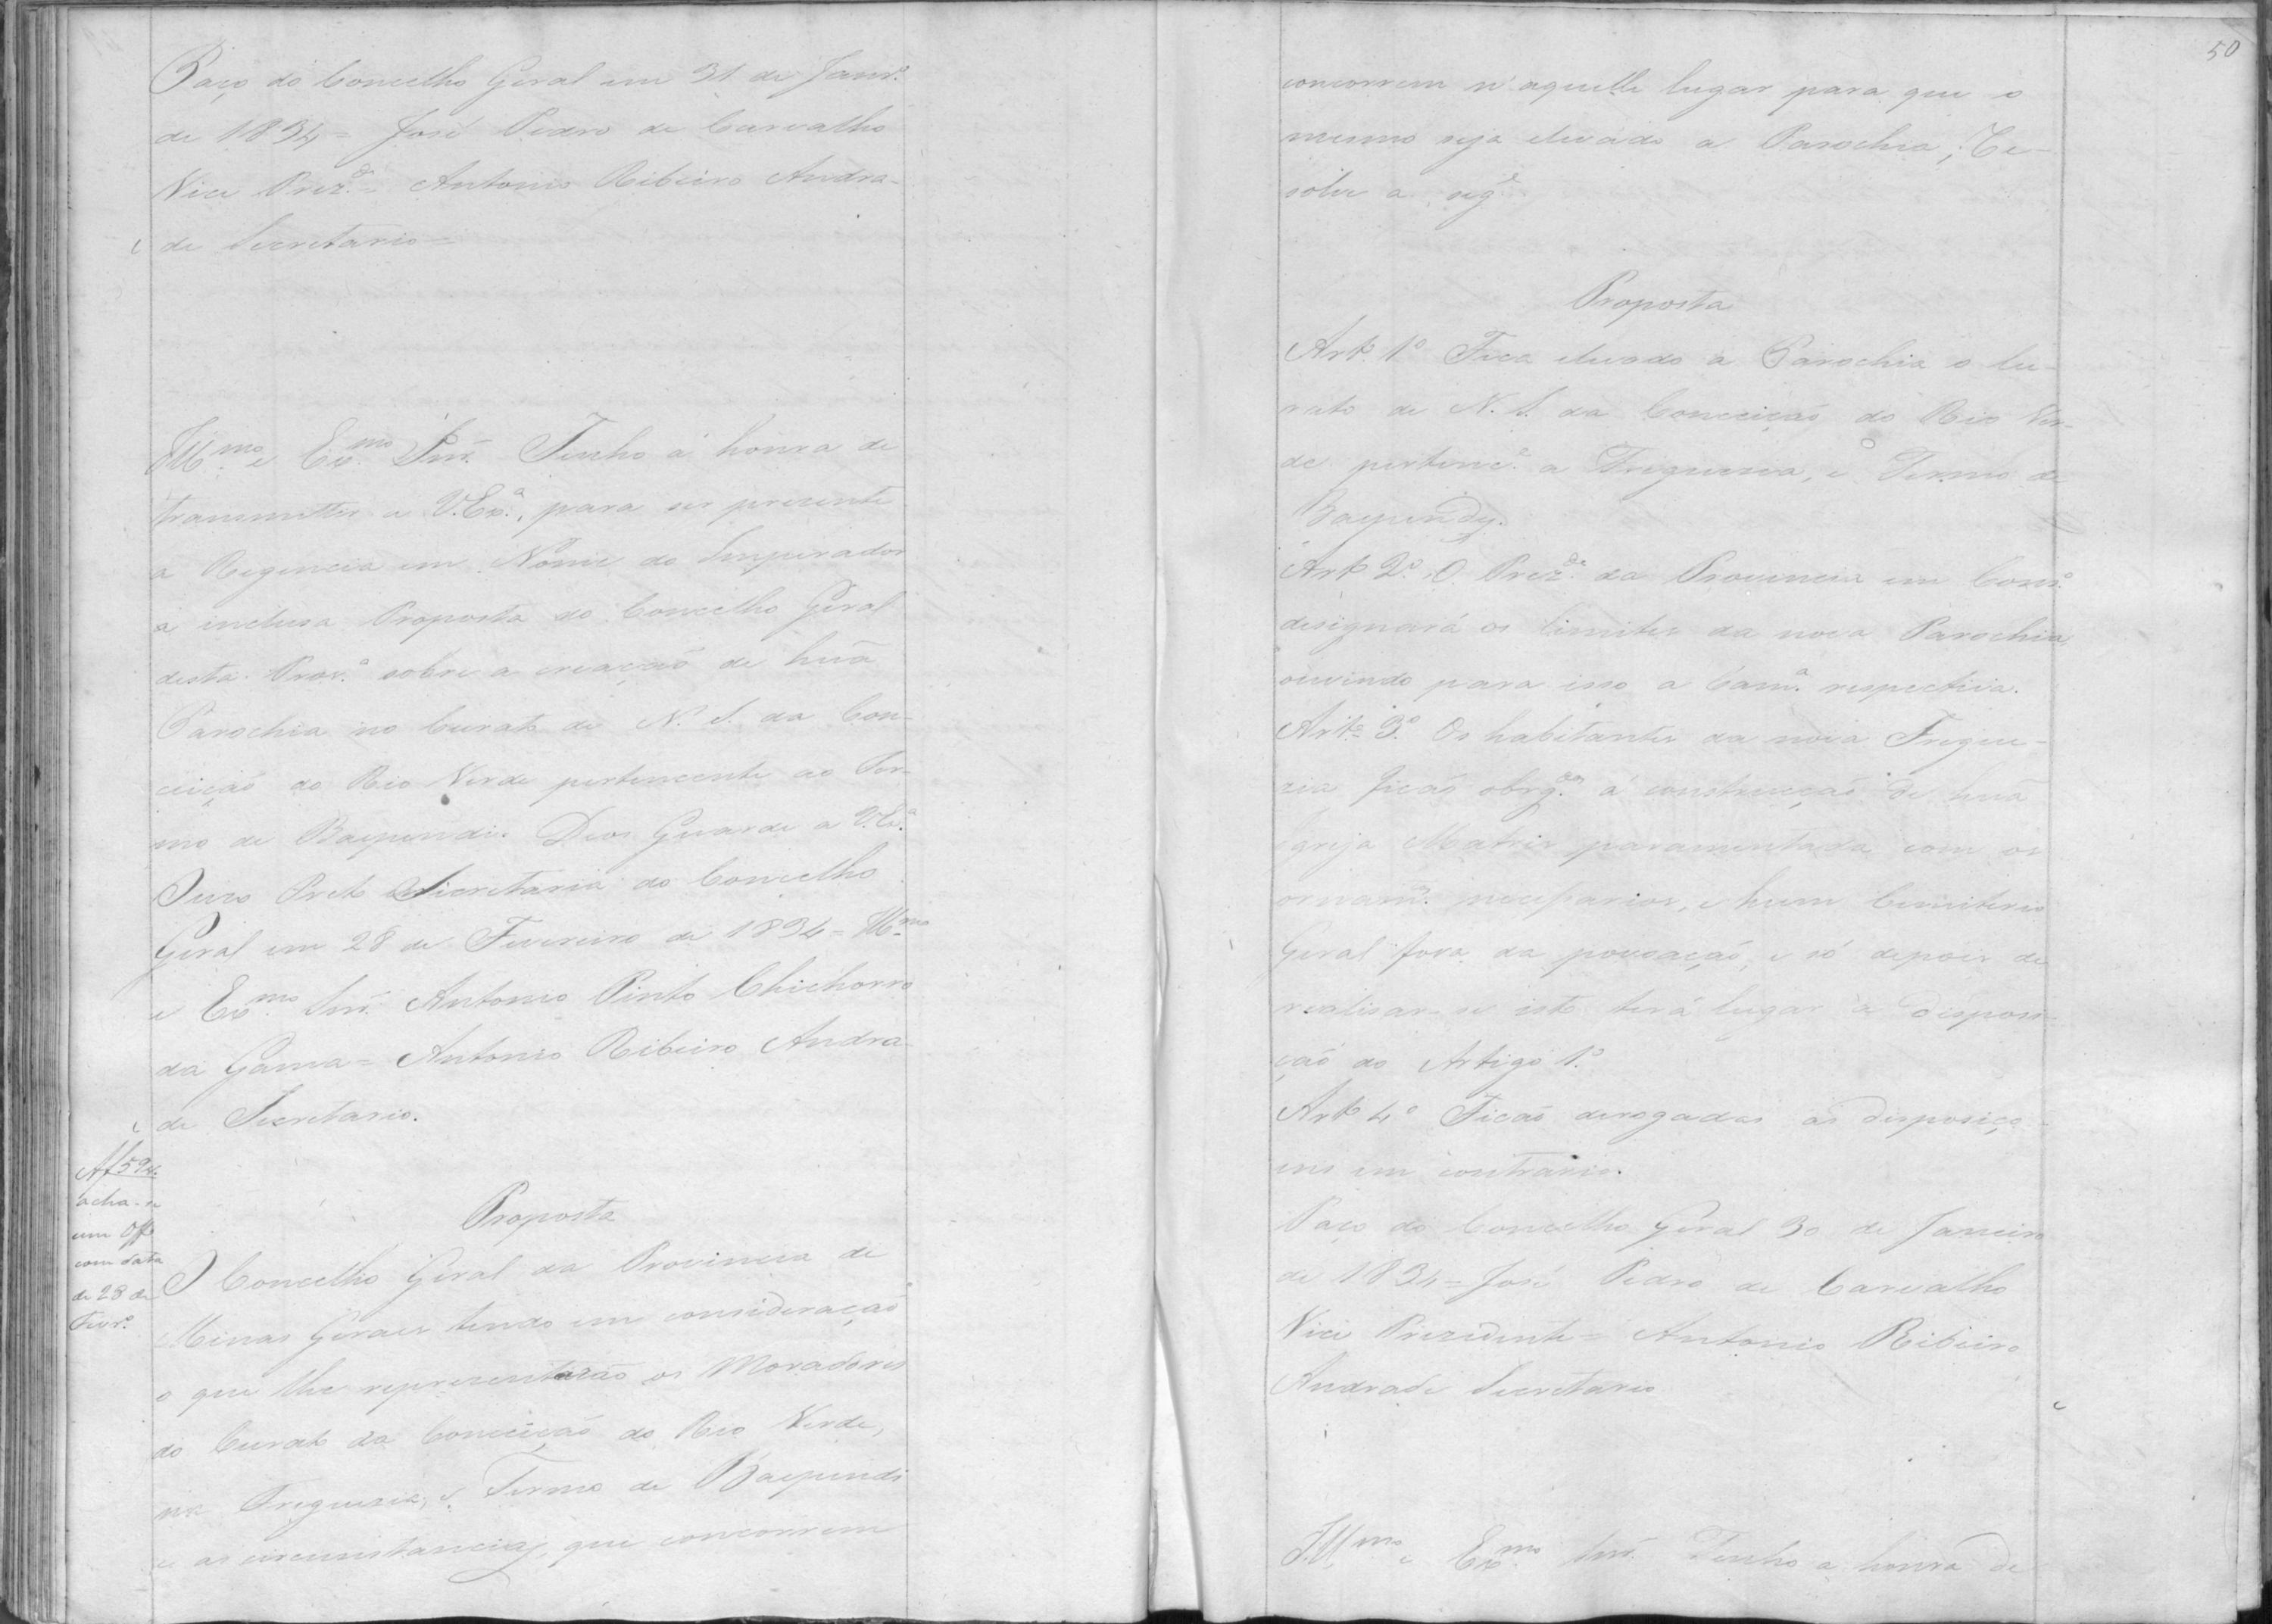 Paço do Concelho Geral em 31 de Janr.º
de 1834 = José Pedro de Carvalho
Vice Prez.de = Antonio Ribeiro Andra-
de Secretario =
Ill.mo e Ex.mo Snr. Tenho a honra de
transmitter a V.Ex.ª, para ser prezente
a Regencia em Nome do Imperador
a inclusa Proposta do Concelho Geral
desta Prov.ª sobre a creação de huã
Parochia no Curato de N. S. da Con-
ceição do Rio Verde pertencente ao Ter-
mo de Baependi. Deos Guarde a V.Ex.ª
Ouro Preto Secretaria do Concelho
Geral em 28 de Fevereiro de 1834 = Ill.mo
e Ex.mo Snr. Antonio Pinto Chichorro
da Gama = Antonio Ribeiro Andra-
de Secretario.
Af 594.
acha-se
um Off.º
com data
de 28 de
Fevr.º
Proposta
O Concelho Geral da Provincia de
Minas Geraes tendo em consideração
o que lhe representarão os Moradores
do Curato da Conceição do Rio Verde,
na Freguezia, e Termo de Baependi
e as circunstancias, que concorrem
50
concorrem n'aquelle lugar para que o
mesmo seja elevado a Parochia; Re-
solve a seg.e
Proposta
Art.º 1º Fica elevado a Parochia o Cu-
rato de N. S. da Conceição do Rio Ver-
de pertenc.e a Freguezia, e Termo de
Baependy.
Art.º 2º. O Prez.de da Provincia em Cons.º
designará os limites da nova Parochia,
ouvindo para isso a Cam.ª respectiva.
Art.º 3º. Os habitantes da nova Fregue-
zia ficão obrg.dos á construcção de huã
Igreja Matriz paramentada com os
ornam.os necessarios, e hum Cemiterio
Geral fora da povoação, e só depois de
realisar-se isto terá lugar a disposi-
ção do Artigo 1º.
Art.º 4º Ficão derogadas as disposiço-
ens em contrario.
Paço do Concelho Geral 30 de Janeiro
de 1834 = José Pedro de Carvalho
Vice Prezidente = Antonio Ribeiro
Andrade Secretario
Ill.mo e Ex.mo Snr. Tenho a honra de